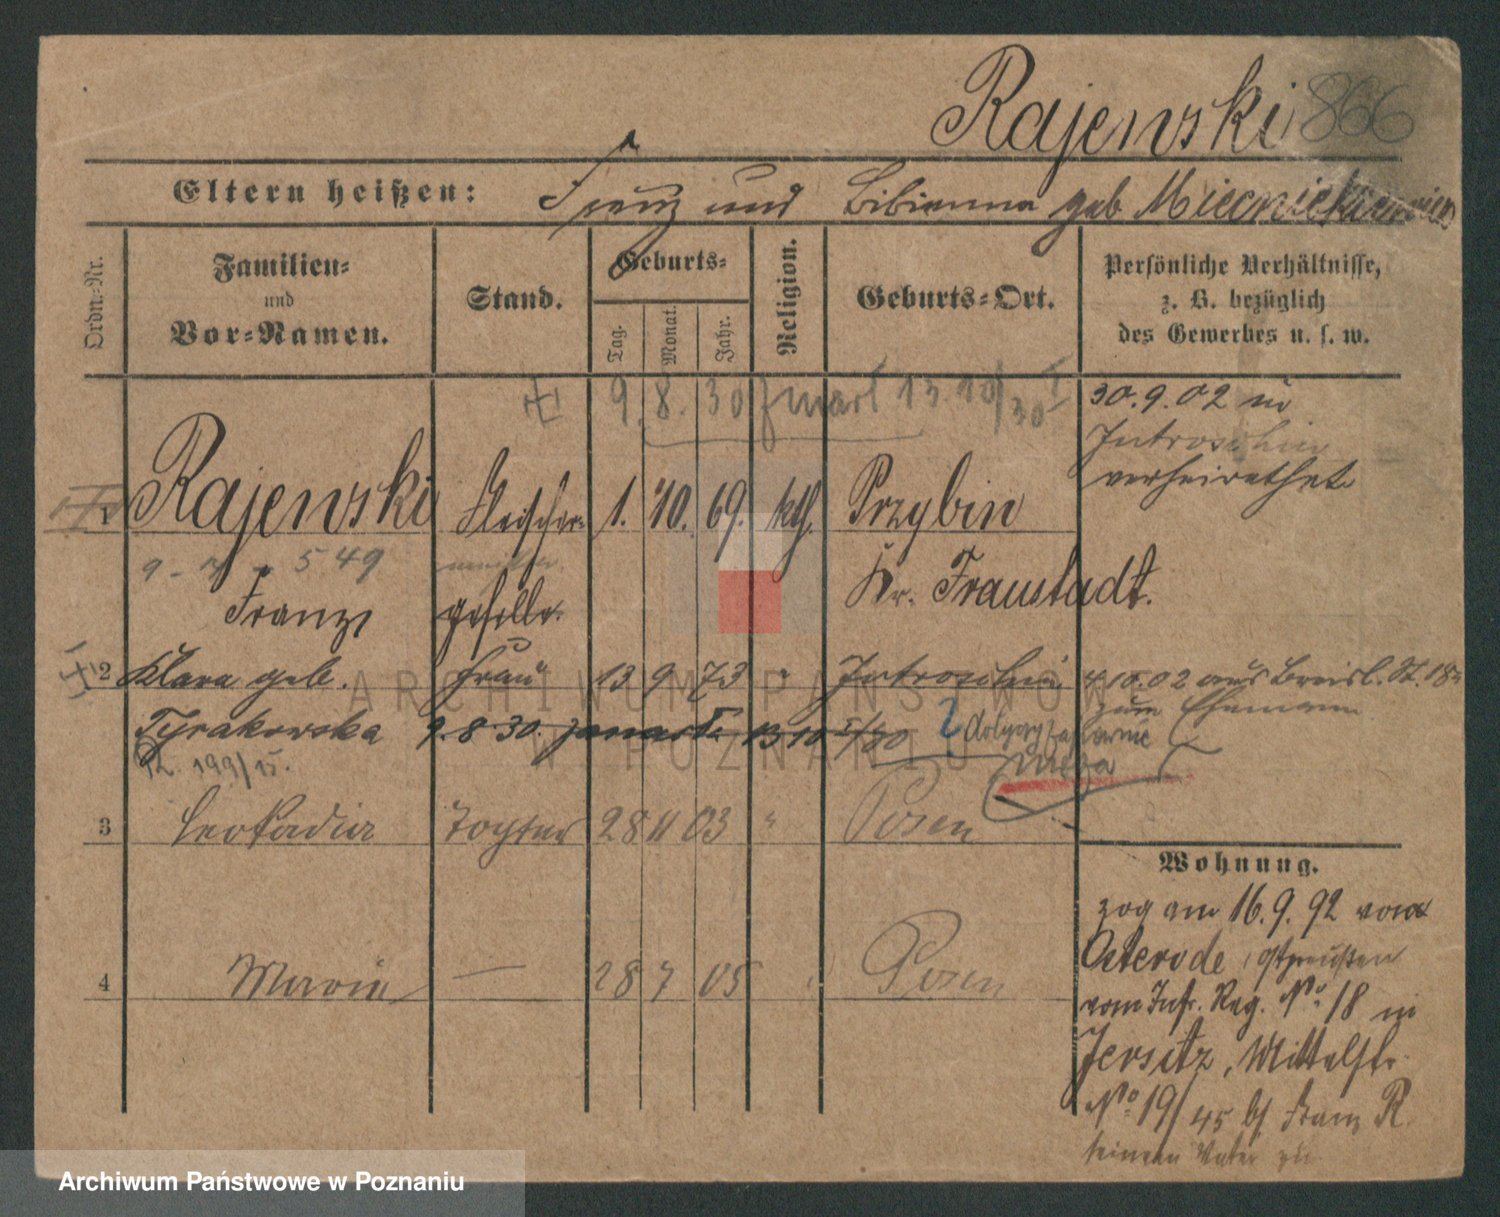 Rajewski 866
Eltern heißen: Franz und Bibianna geb
Ordn.-Nr.
Familien- und Vor-Namen.
Stand.
Geburts-
Tag. Monat. Jahr.
Religion.
Geburts-Ort.
Persönliche Verhältnisse,
z. B. bezüglich
des Gewerbes u. s. w.
9. 8. 30 zmarł 13.10/30 I
30.9.02 in
Introschin
verheirathet
1 Rajewski Fleischer- 1. 10. 69. kth. Przybin
9 - 549
Franz geselle. Kr. Fraustadt.
2 Klara geb. Frau 13 9 73 " Jutroschin 4.10.02 aus Breisl. St. 18
Tyrakowska 9.8 30. 13 10 30
zum Ehemann
męża
199/15.
3 Leokadia Tochter 28 11 03 " Posen
Wohnung.
4 Maria — 28 7 05 " Posen
zog am 16.9.92 von
Osterode, Ostpreußen
vom Inf. Reg. No. 18 in
Jersitz, Mittelstr.
No. 19/45 bei Franz R.
seinem Vater zu
ARCHIWUM PAŃSTWOWE
W POZNANIU
Archiwum Państwowe w Poznaniu